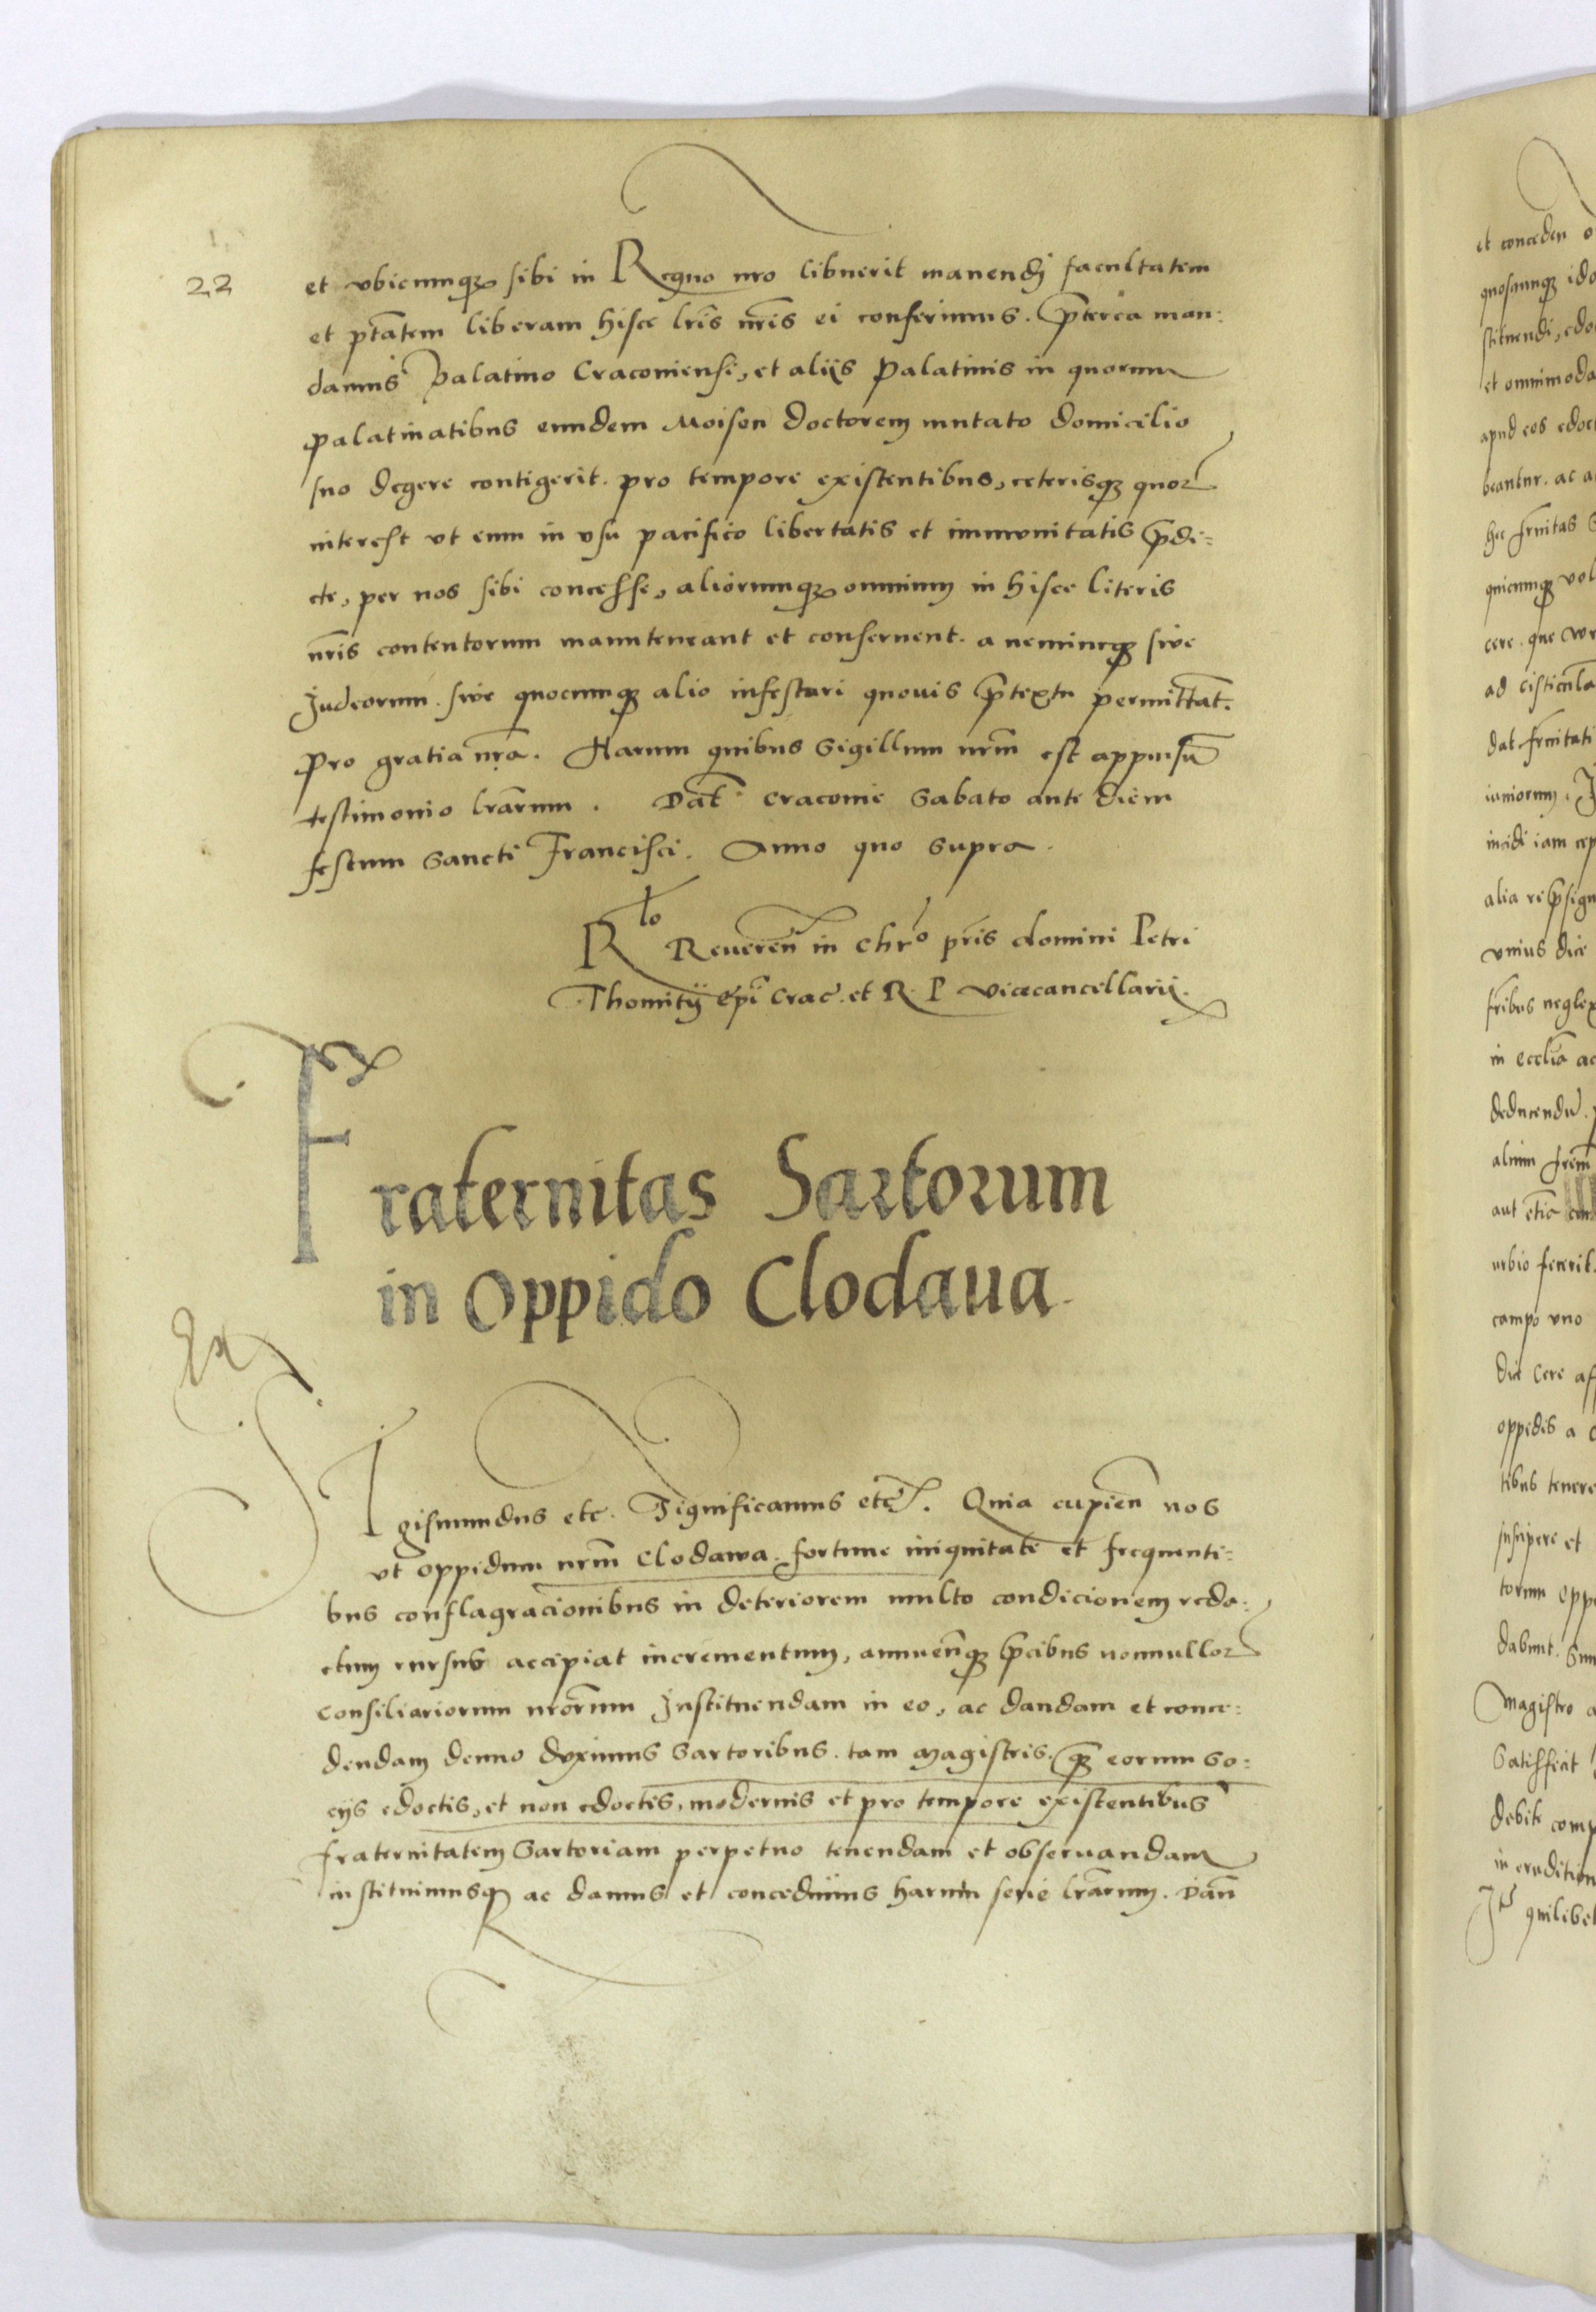 22
et vbicumqȝ sibi in Regno nro libuerit manendj facultatem
et ptātem liberam hisce lris nris ei conferimus. Preterea man:
damus Palatino Cracouiensi, et aliis Palatinis in quorum
palatinatibus eundem Moisen doctorem mutato domicilio
suo degere contigerit. pro tempore existentibus, ceterisqȝ quoꝝ
interest vt eum in vsu pacifico libertatis et immunitatis predi=
cte, per nos sibi concesse, aliorumqȝ omnium in hisce literis
nris contentorum manuteneant et conseruent. a nemineqȝ siue
Judeorum. siue quocumqȝ alio infestari quouis pretextu permittāt.
pro gratia nra. Harum quibus Sigillum nrm est appensū
testimonio lrarum. Dat Cracouie Sabato ante diem
festum Sancti Francisci. Anno quo supra.
Rlo Reueren in Chro pris domini Petri
Thomitij epi Crac. et R. P. vicecancellarii.
Fraternitas Sartorum
in Oppido Clodaua.
Ex
Sigismundus etc. Significamus etc. Quia cupien nos
vt oppidum nrm Clodawa. fortune iniquitate et frequenti=
bus conflagracionibus in deteriorem multo condicionem reda:
ctum rursus accipiat incrementum, annuenqȝ precibus nonnulloꝝ
consiliariorum nrorum Instituendam in eo, ac dandam et conce:
dendam denuo duximus Sartoribus. tam Magistris. qȝ eorum So:
ciis edoctis, et non edoctis, modernis et pro tempore existentibus
fraternitatem Sartoriam perpetuo tenendam et obseruandam
instituimusqȝ ac damus et concedimus harum serie lrarum. Dan
et conceden
quoscumqȝ
stituendi,
et omnimoda
apud eos
beantur. ac
hec frnitas
quicumqȝ
cere. que
ad
dat frnitati
iuniorum.
iam
alia
vnius die
fribus
in ecclia ac
deducendū.
alium frem
aut etia
fecerit.
campo vno
die Cere
oppidis a
tibus tenere
suscipere et
torum
dabunt.
Magistro
Satisfecit
debite
in erudition
It quilibet